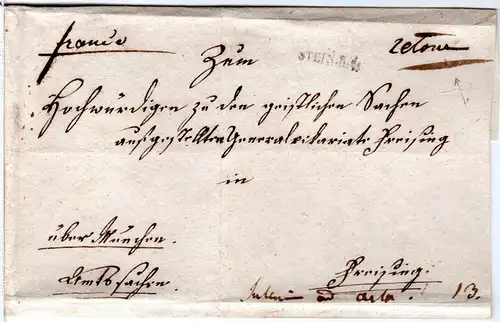 franco
retour
STEIN.R.4.
Zum
Hochwürdigen zu den geistlichen Sachen
aufgestellten Generalvikariate Freising
in
über München.
Amtssachen.
Freising.
ad acta. 13.